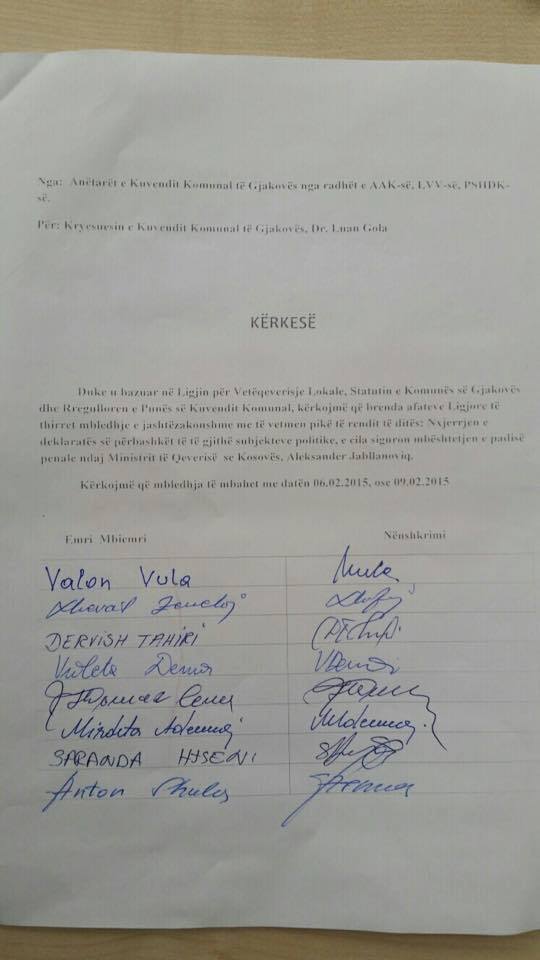 Nga: Anëtarët e Kuvendit Komunal të Gjakovës nga radhët e AAK-së, LVV-së, PSHDK-
së.
Për: Kryesuesin e Kuvendit Komunal të Gjakovës, Dr. Luan Gola
KËRKESË
Duke u bazuar në Ligjin për Vetëqeverisje Lokale, Statutin e Komunës së Gjakovës
dhe Rregulloren e Punës së Kuvendit Komunal, kërkojmë që brenda afateve Ligjore të
thirret mbledhje e jashtëzakonshme me të vetmen pikë të rendit të ditës: Nxjerrjen e
deklaratës së përbashkët të të gjithë subjekteve politike, e cila siguron mbështetjen e padisë
penale ndaj Ministrit të Qeverisë se Kosovës, Aleksander Jabllanoviq.
Kërkojmë që mbledhja të mbahet me datën 06.02.2015, ose 09.02.2015
Emri Mbiemri Nënshkrimi
Valon Vula
DERVISH TAHIRI
Violeta Dema VDema
Mirdita Ademaj MAdemaj
SARANDA HISENI
Anton